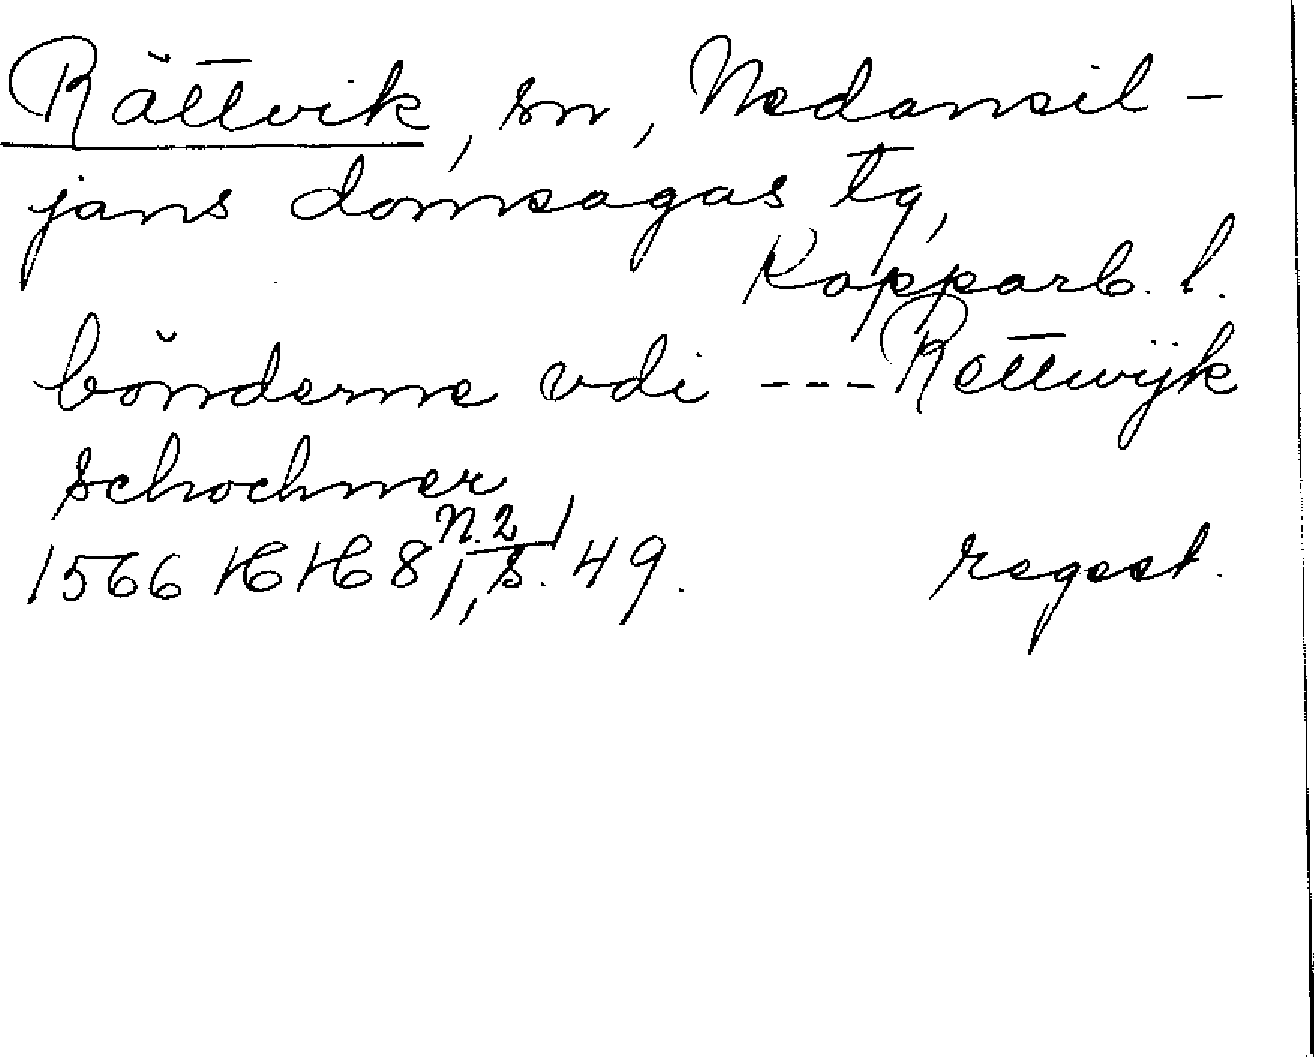 Rättvik, sn, Nedansil-
jans domsagas tg,
Kopparb. l.
bönderne vdi --- Rettwijk
schochner
N. 2
1566 HH 8, s. 49. regest.